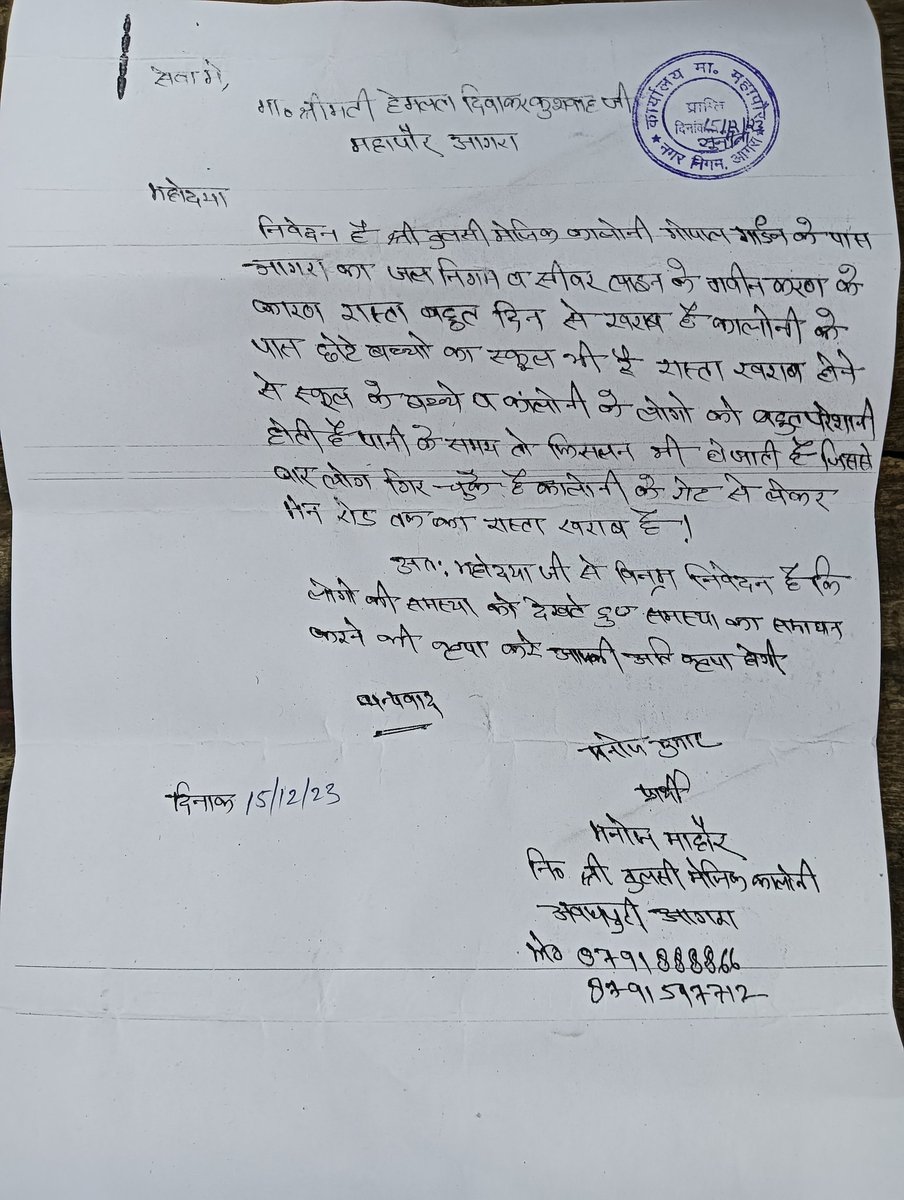 सेवा मे,
मा० श्रीमती हेमलता दिवाकर कुशवाह जी
महापौर आगरा
कार्यालय मा. महापौर
प्राप्ति
दिनांक 15/12/23
नगर निगम, आगरा
महोदया
निवेदन है श्री तुलसी मेजिक कालोनी गोपाल गार्डन के पास
आगरा का जल निगम व सीवर लाइन के नवीन करण के
कारण रास्ता बहुत दिन से खराब है कालोनी के
पास छोटे बच्चो का स्कूल भी है रास्ता खराब होने
से स्कूल के बच्चे व कालोनी के लोगो को बहुत परेशानी
होती है पानी के समय तो फिसलन भी हो जाती है जिससे
चार लोग गिर चुके है कालोनी के गेट से लेकर
मेन रोड तक का रास्ता खराब है!
अतः महोदया जी से विनम्र निवेदन है कि
लोगो की समस्या को देखते हुए समस्या का समाधन
करने की कृपा करे आपकी अति कृपा होगी
धन्यवाद
दिनाक 15/12/23
मनोज कुमार
प्रार्थी
मनोज माहौर
नि० श्री तुलसी मेजिक कालोनी
अवधपुरी आगरा
मो० 8791888866
8791597712